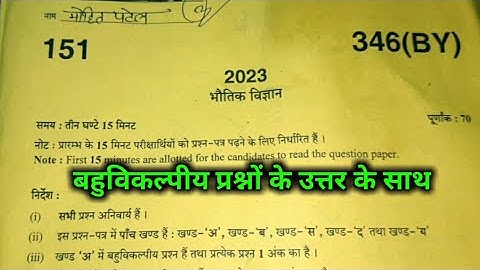 नाम मोहित पटेल
151
346(BY)
2023
भौतिक विज्ञान
समय : तीन घण्टे 15 मिनट
पूर्णांक : 70
नोट : प्रारम्भ के 15 मिनट परीक्षार्थियों को प्रश्न-पत्र पढ़ने के लिए निर्धारित हैं ।
Note : First 15 minutes are allotted for the candidates to read the question paper.
बहुविकल्पीय प्रश्नों के उत्तर के साथ
निर्देश :
(i) सभी प्रश्न अनिवार्य हैं ।
(ii) इस प्रश्न-पत्र में पाँच खण्ड हैं : खण्ड-'अ', खण्ड-'ब', खण्ड-'स', खण्ड-'द' तथा खण्ड-'य'
(iii) खण्ड 'अ' में बहुविकल्पीय प्रश्न हैं तथा प्रत्येक प्रश्न 1 अंक का है ।